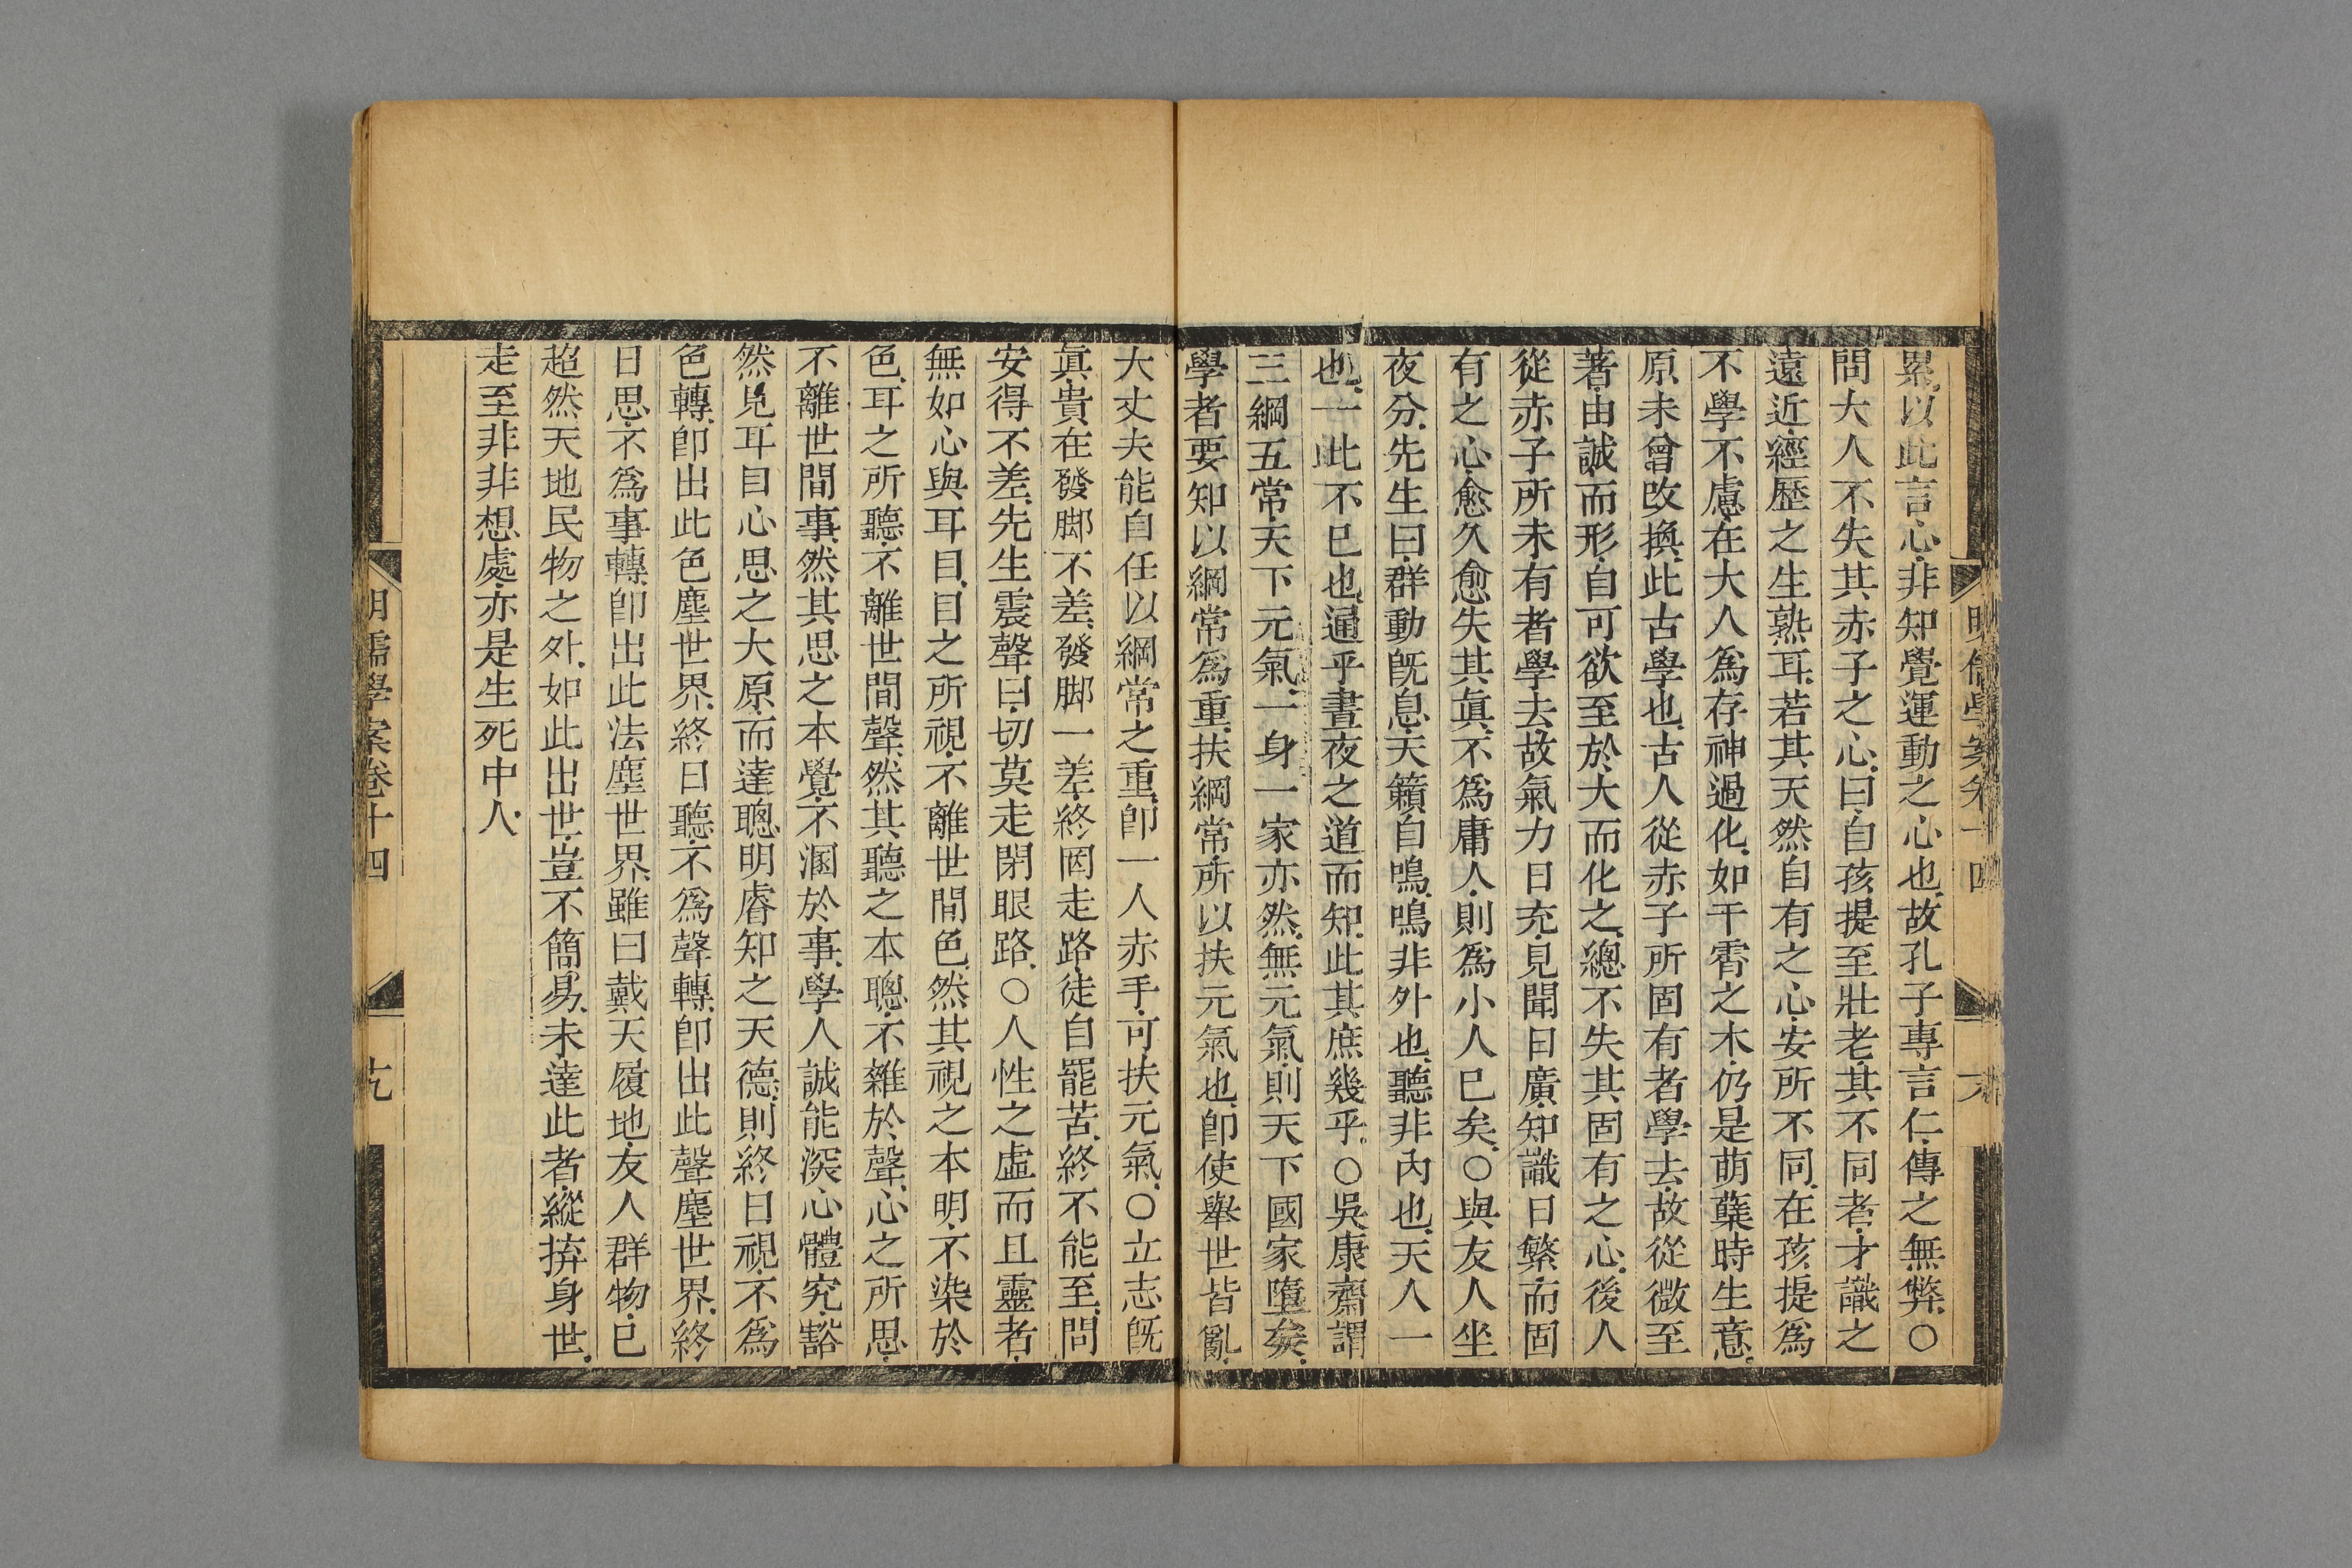 明儒學案卷十四
累以此言心非知覺運動之心也故孔子專言仁傳之無弊○
問大人不失其赤子之心曰自孩提至壯老其不同者才識之
遠近經歷之生熟耳若其天然自有之心安所不同在孩提爲
不學不慮在大人爲存神過化如干霄之木仍是萌蘖時生意
原未曾改換此古學也古人從赤子所固有者學去故從微至
著由誠而形自可欲至於大而化之總不失其固有之心後人
從赤子所未有者學去故氣力日充見聞日廣知識日繁而固
有之心愈久愈失其眞不爲庸人則爲小人已矣○與友人坐
夜分先生曰群動旣息天籟自鳴鳴非外也聽非內也天人一
也一此不已也通乎晝夜之道而知此其庶幾乎○吳康齋謂
三綱五常天下元氣一身一家亦然無元氣則天下國家墮矣
學者要知以綱常爲重扶綱常所以扶元氣也卽使舉世皆亂
大丈夫能自任以綱常之重卽一人赤手可扶元氣○立志旣
眞貴在發脚不差發脚一差終罔走路徒自罷苦終不能至問
安得不差先生震聲曰切莫走閉眼路○人性之虛而且靈者
無如心與耳目目之所視不離世間色然其視之本明不染於
色耳之所聽不離世間聲然其聽之本聰不雜於聲心之所思
不離世間事然其思之本覺不溷於事學人誠能深心體究豁
然見耳目心思之大原而達聰明睿知之天德則終日視不爲
色轉卽出此色塵世界終日聽不爲聲轉卽出此聲塵世界終
日思不爲事轉卽出此法塵世界雖曰戴天履地友人群物已
超然天地民物之外如此出世豈不簡易未達此者縱拚身世
走至非非想處亦是生死中人
明儒學案卷十四